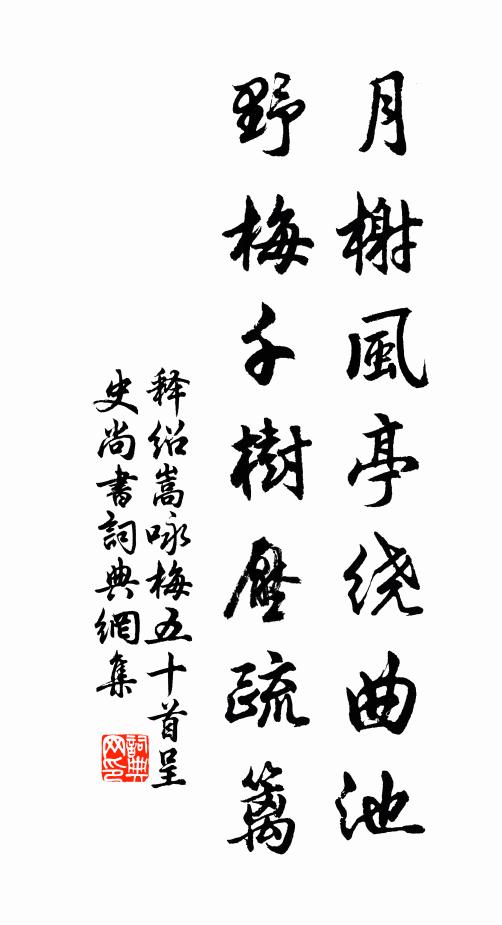 月榭風亭绕曲池
野梅千樹壓疏篱
释绍嵩咏梅五十首呈
史尚書詞典網集
詞典网印